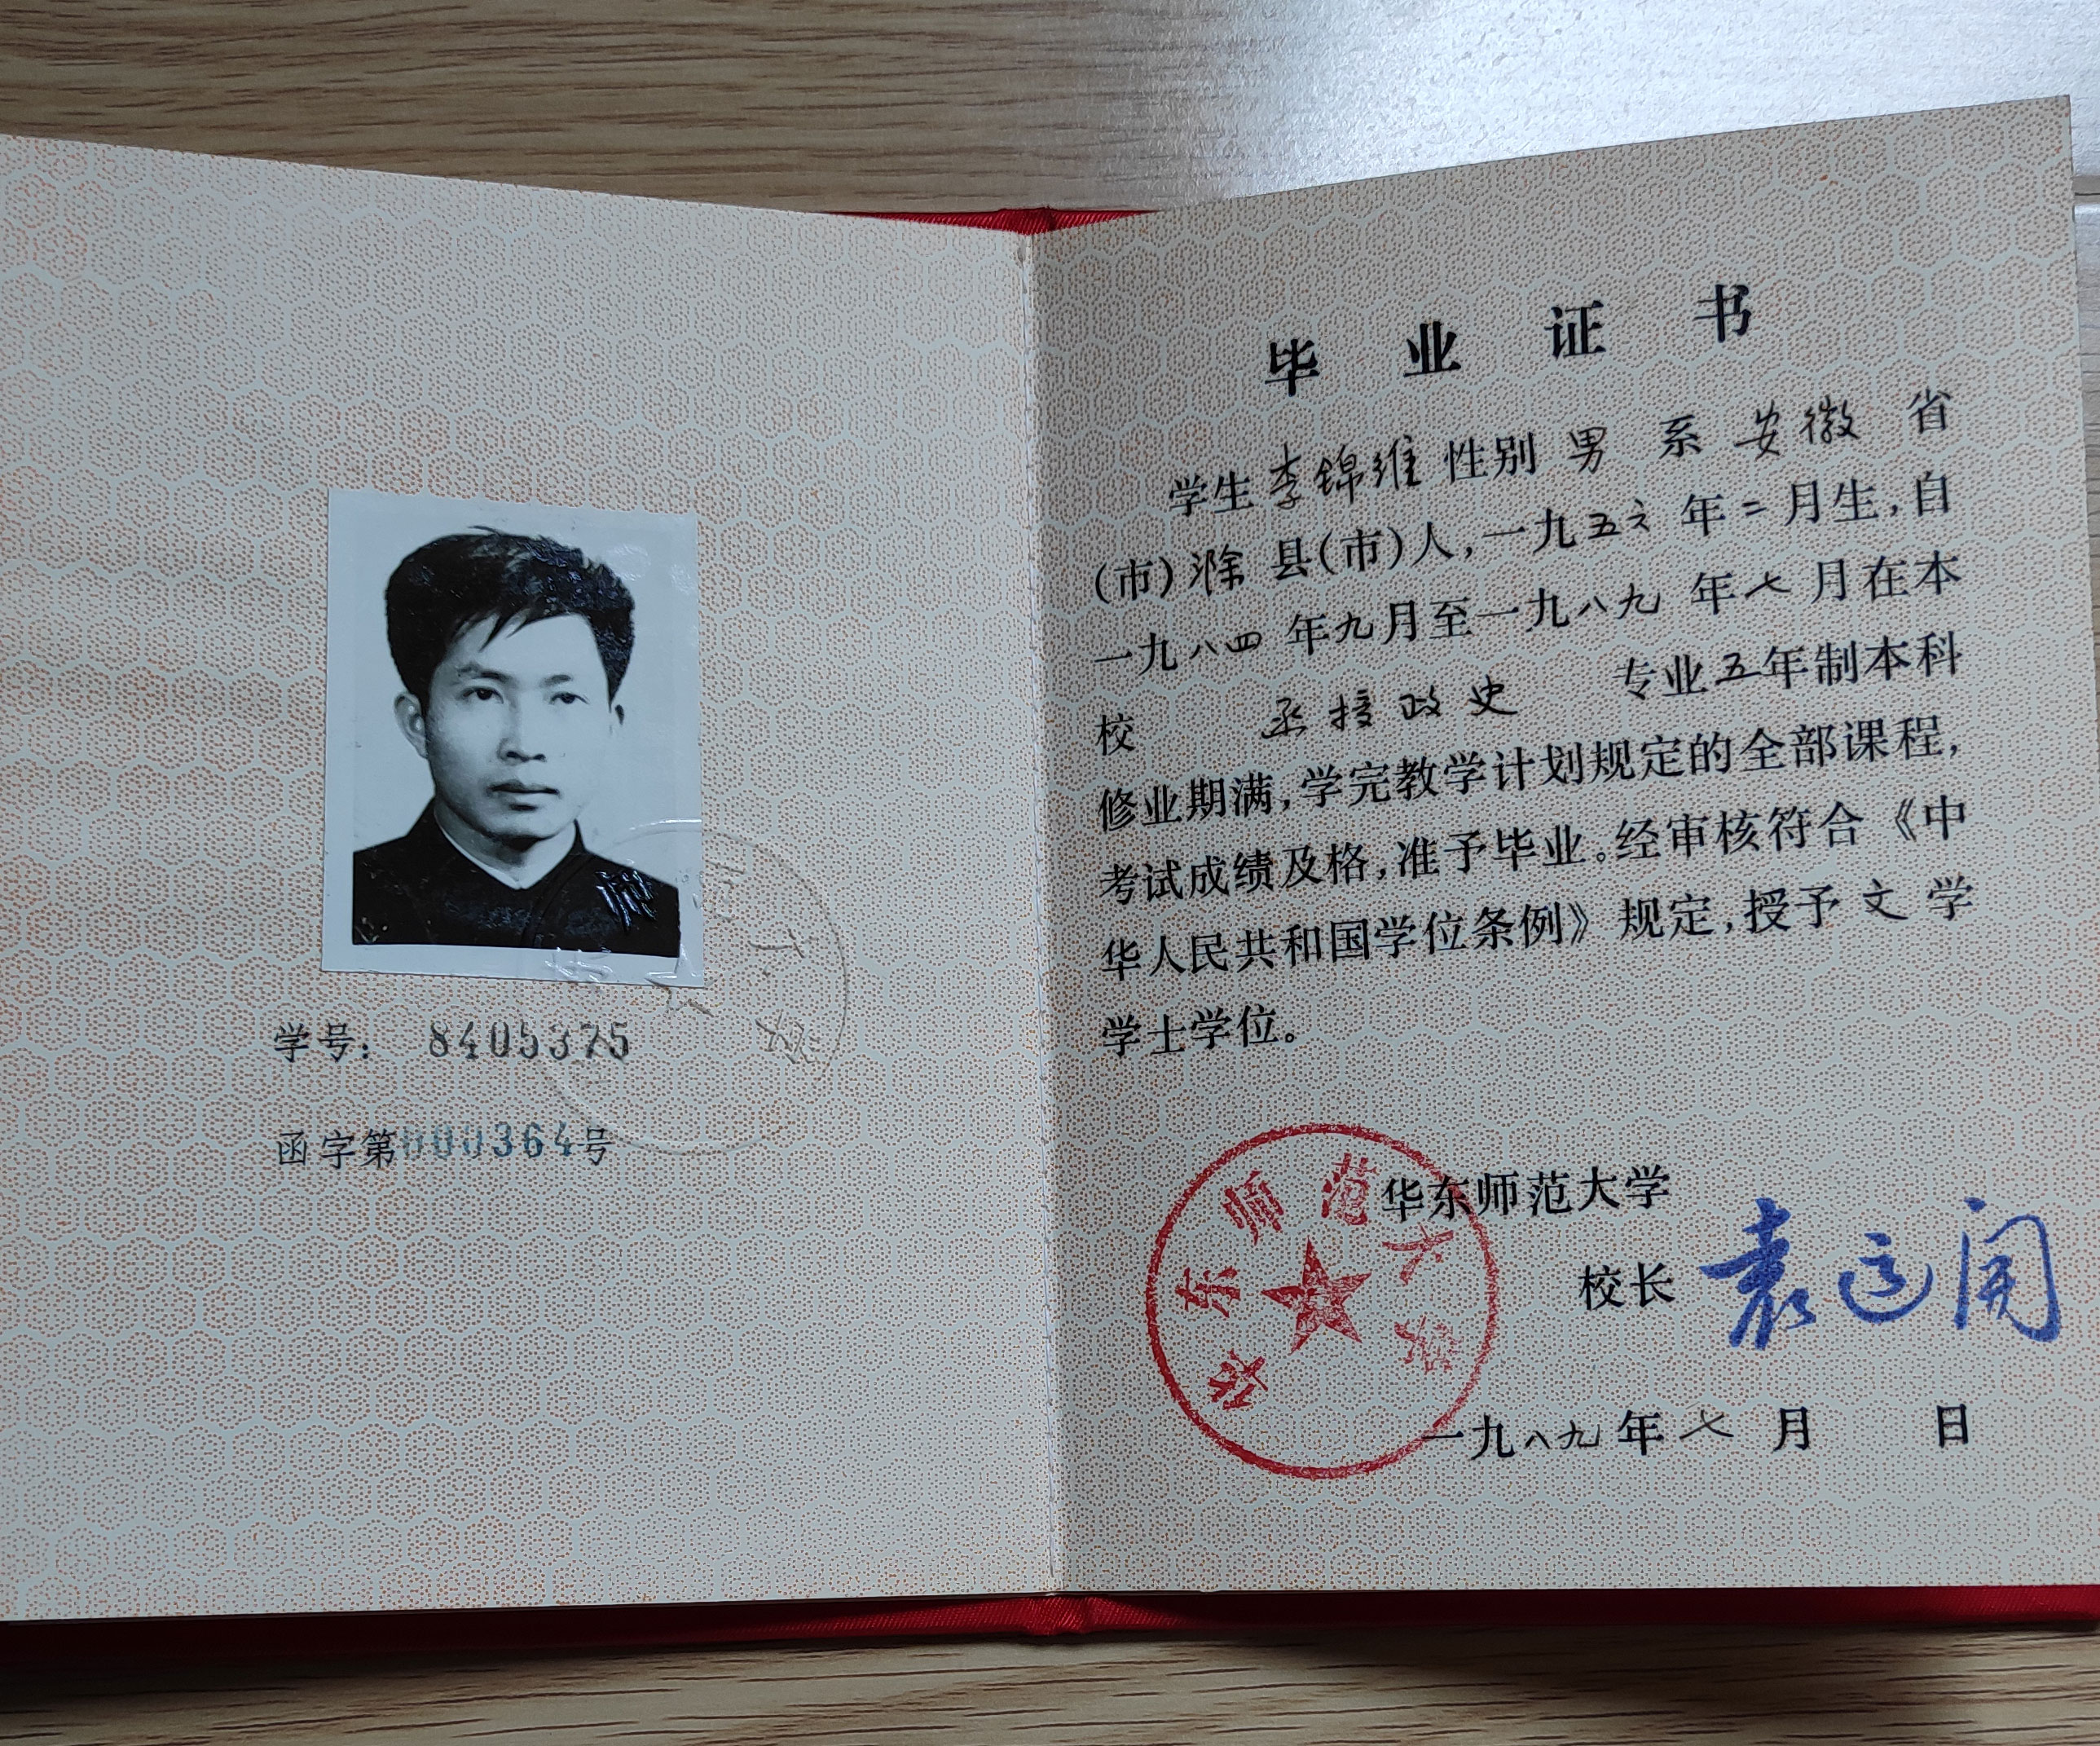 学号: 8405375
函字第000364号
毕业证书
学生李锦维性别男系安徽省
(市)滁县(市)人,一九五六年二月生,自
一九八四年九月至一九八九年七月在本
校 函授政史 专业五年制本科
修业期满,学完教学计划规定的全部课程,
考试成绩及格,准予毕业。经审核符合《中
华人民共和国学位条例》规定,授予文学
学士学位。
华东师范大学
华东师范大学
校长 袁运开
一九八九年七月 日